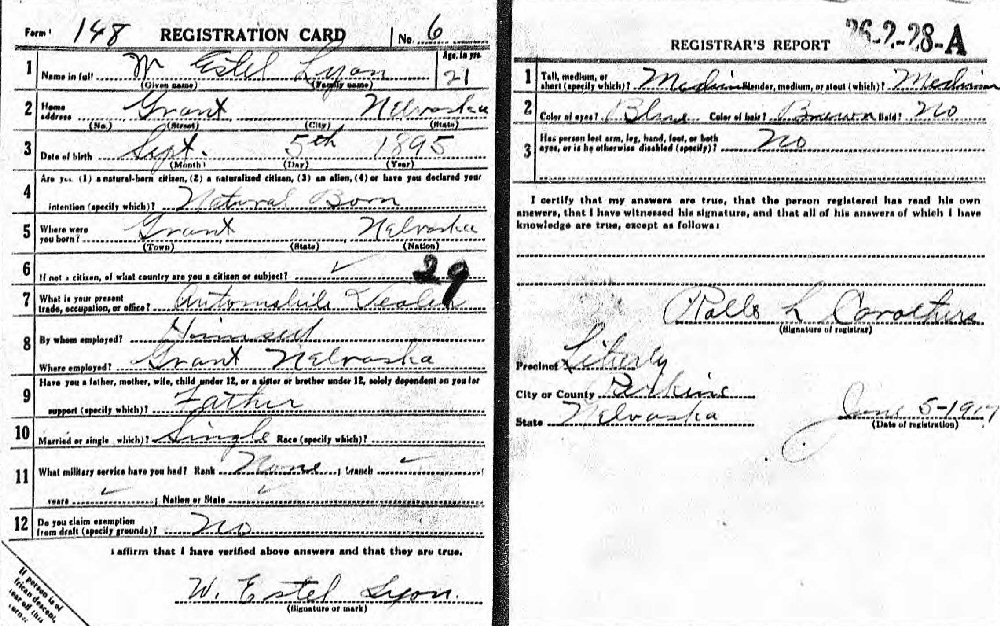 Form 1 148 REGISTRATION CARD No. 6
1 Name in full W Estel Lyon Age, in yrs. 21
(Given name) (Family name)
2 Home address Grant Nebraska
(No.) (Street) (City) (State)
3 Date of birth Sept. 5th 1895
(Month) (Day) (Year)
4 Are you (1) a natural-born citizen, (2) a naturalized citizen, (3) an alien, (4) or have you declared your
intention (specify which)? Natural Born
5 Where were you born? Grant Nebraska
(Town) (State) (Nation)
6 If not a citizen, of what country are you a citizen or subject? ✓ 29
7 What is your present trade, occupation, or office? Automobile Dealer
8 By whom employed? Himself
Where employed? Grant Nebraska
9 Have you a father, mother, wife, child under 12, or a sister or brother under 12, solely dependent on you for
support (specify which)? Father
10 Married or single which)? Single Race (specify which)?
11 What military service have you had? Rank None ; branch ✓ ;
years ✓ ; Nation or State ✓
12 Do you claim exemption from draft (specify grounds)? No
I affirm that I have verified above answers and that they are true.
W. Estel Lyon.
(Signature or mark)
If person is of
African descent,
tear off this
corner
REGISTRAR'S REPORT 26-2-28-A
1 Tall, medium, or short (specify which)? Medium Slender, medium, or stout (which)? Medium
2 Color of eyes? Blue Color of hair? Brown Bald? No
3 Has person lost arm, leg, hand, foot, or both
eyes, or is he otherwise disabled (specify)? No
I certify that my answers are true, that the person registered has read his own
answers, that I have witnessed his signature, and that all of his answers of which I have
knowledge are true, except as follows:
Rollo L Carothers
(Signature of registrar)
Precinct Liberty
City or County Perkins
State Nebraska June 5-1917
(Date of registration)